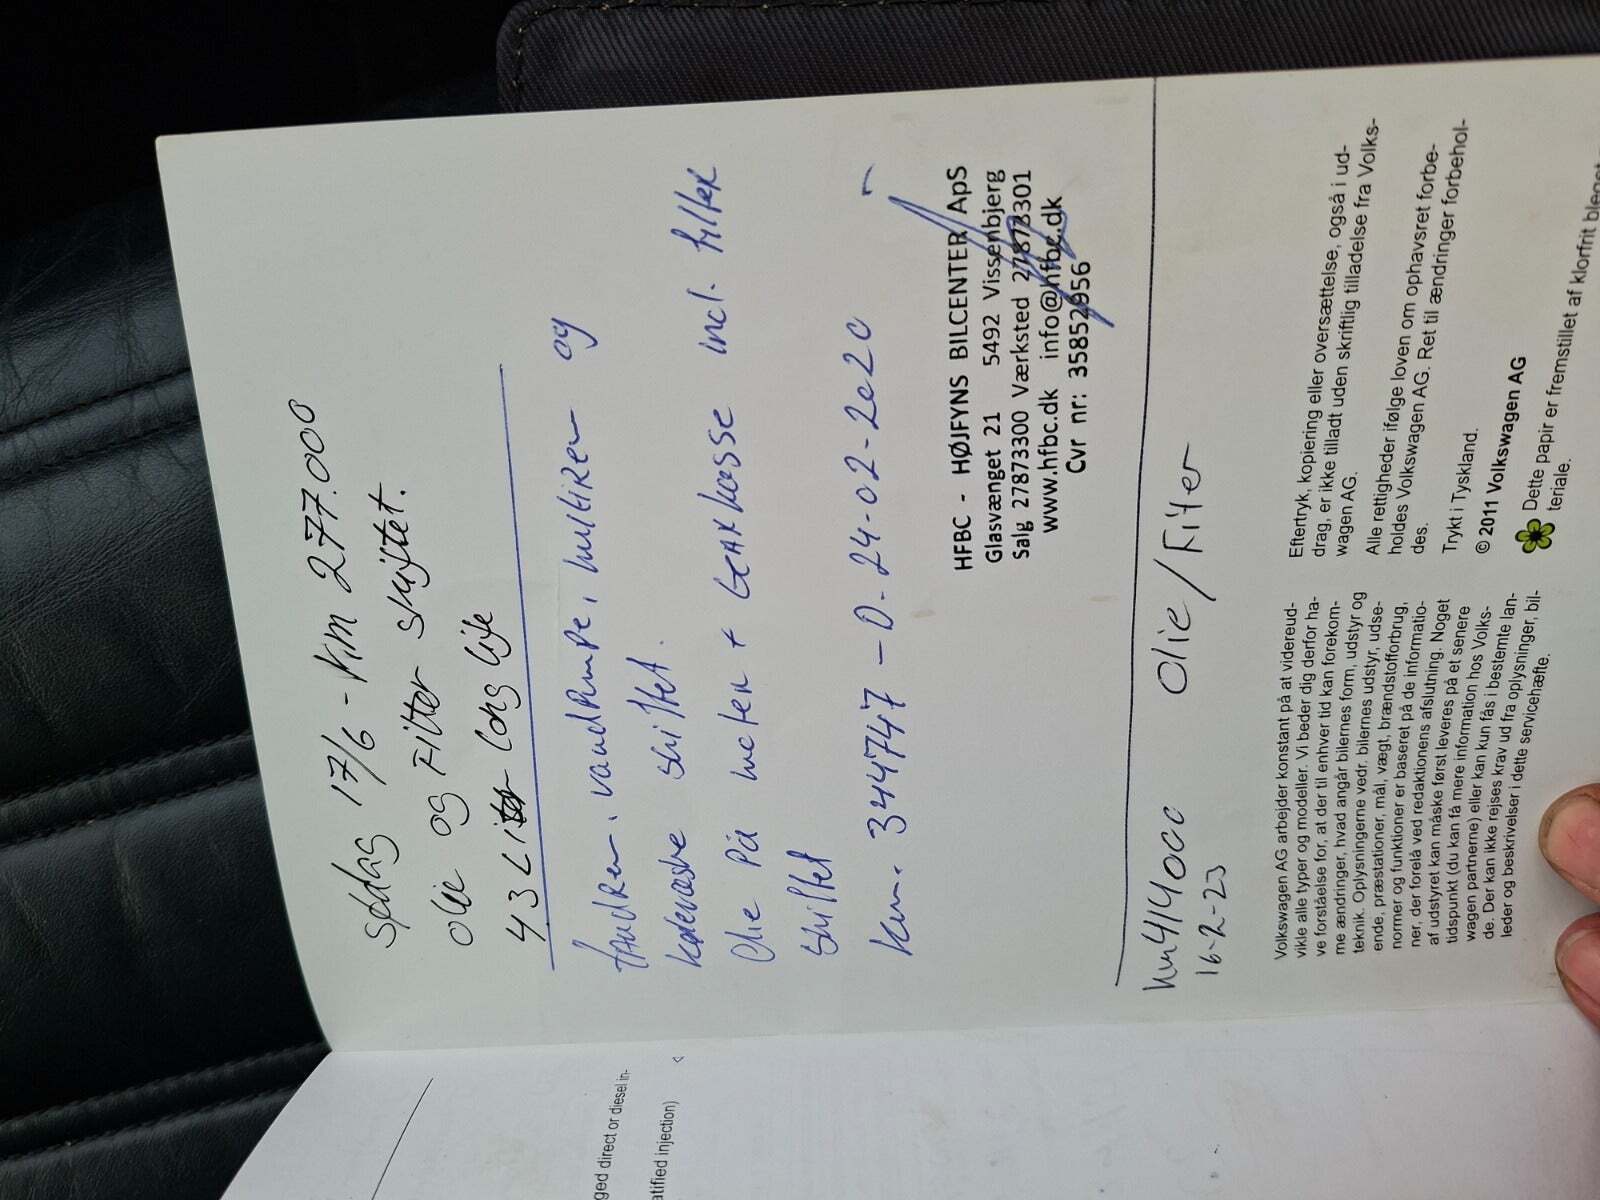 søndag 17/6 - Km 277.000
olie og Filter skiftet.
4,3 Liter Long life
Tandrem, vandpumpe, multirem og
kølevæske skiftet.
Olie på motor + Gearkasse incl. filter
skiftet
km. 344747 - D. 24-02-2020
HFBC - HØJFYNS BILCENTER ApS
Glasvænget 21 5492 Vissenbjerg
Salg 27873300 Værksted 27873301
www.hfbc.dk info@hfbc.dk
Cvr nr: 35852956
km 414000 Olie/Filter
16-2-23
Volkswagen AG arbejder konstant på at videreud-
vikle alle typer og modeller. Vi beder dig derfor ha-
ve forståelse for, at der til enhver tid kan forekom-
me ændringer, hvad angår bilernes form, udstyr og
teknik. Oplysningerne vedr. bilernes udstyr, udse-
ende, præstationer, mål, vægt, brændstofforbrug,
normer og funktioner er baseret på de informatio-
ner, der forelå ved redaktionens afslutning. Noget
af udstyret kan måske først leveres på et senere
tidspunkt (du kan få mere information hos Volks-
wagen partnerne) eller kan kun fås i bestemte lan-
de. Der kan ikke rejses krav ud fra oplysninger, bil-
leder og beskrivelser i dette servicehæfte.
Eftertryk, kopiering eller oversættelse, også i ud-
drag, er ikke tilladt uden skriftlig tilladelse fra Volks-
wagen AG.
Alle rettigheder ifølge loven om ophavsret forbe-
holdes Volkswagen AG. Ret til ændringer forbehol-
des.
Trykt i Tyskland.
© 2011 Volkswagen AG
Dette papir er fremstillet af klorfrit bleget
teriale.
ged direct or diesel in-
atified injection)